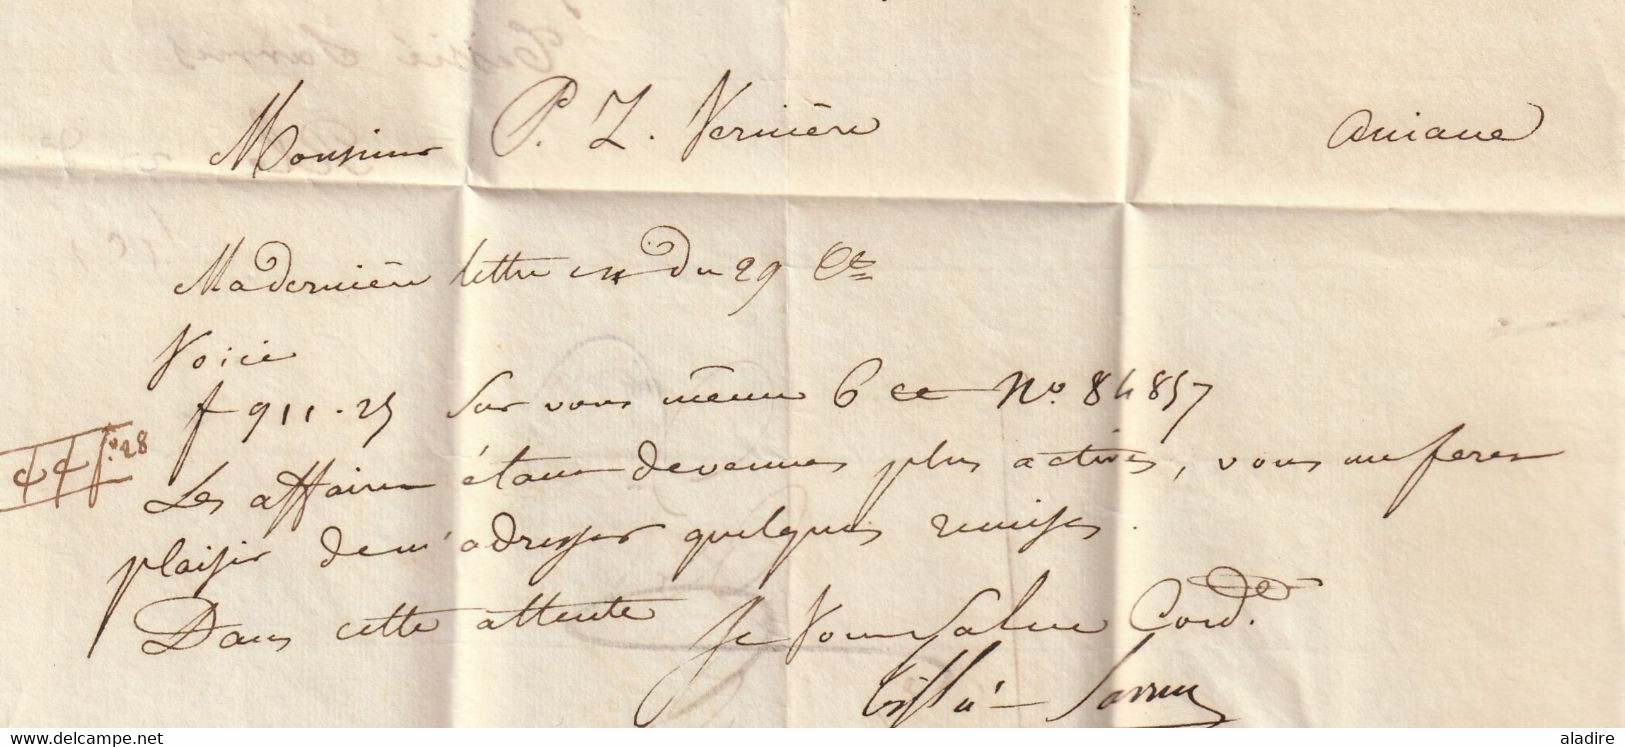 Monsieur P. Z. Vernière Aniane
Ma dernière lettre est du 29 Ct
Voici
f 911.25 Sur vous même 6 ct No. 84857
Les affaires étant devenues plus actives, vous me ferez
plaisir de m'adresser quelques remises.
Dans cette attente Je Vous Salue Cord.
Tissié Sarrus
Tissié Sarrus
www.delcampe.net
aladire